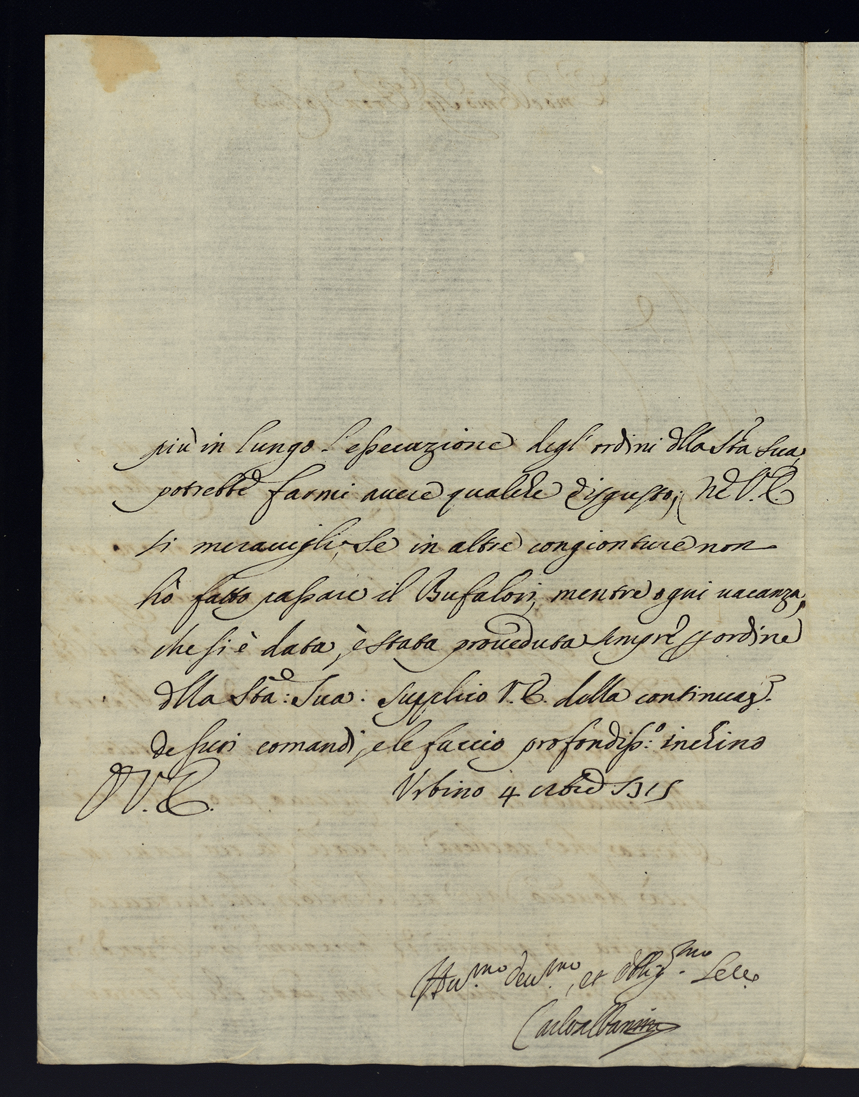 più in lungo l'essecuzione degl'ordini dlla Sta Sua,
potrebbe farmi avere qualche disgusto; Ne V. E.
si meravigli, se in altre congionture non
hò fatto passare il Bufalori, mentre ogni vacanza,
che si è data, è stata proveduta sempre p ordine
dlla Sta: Sua: supplico V. E. della continuaz.e
de suoi comandi, e le faccio profondiss:o inchino
D V. E.
Urbino 4 1715
Hu.mo deu.mo, et obblig.mo
Carlo Albani